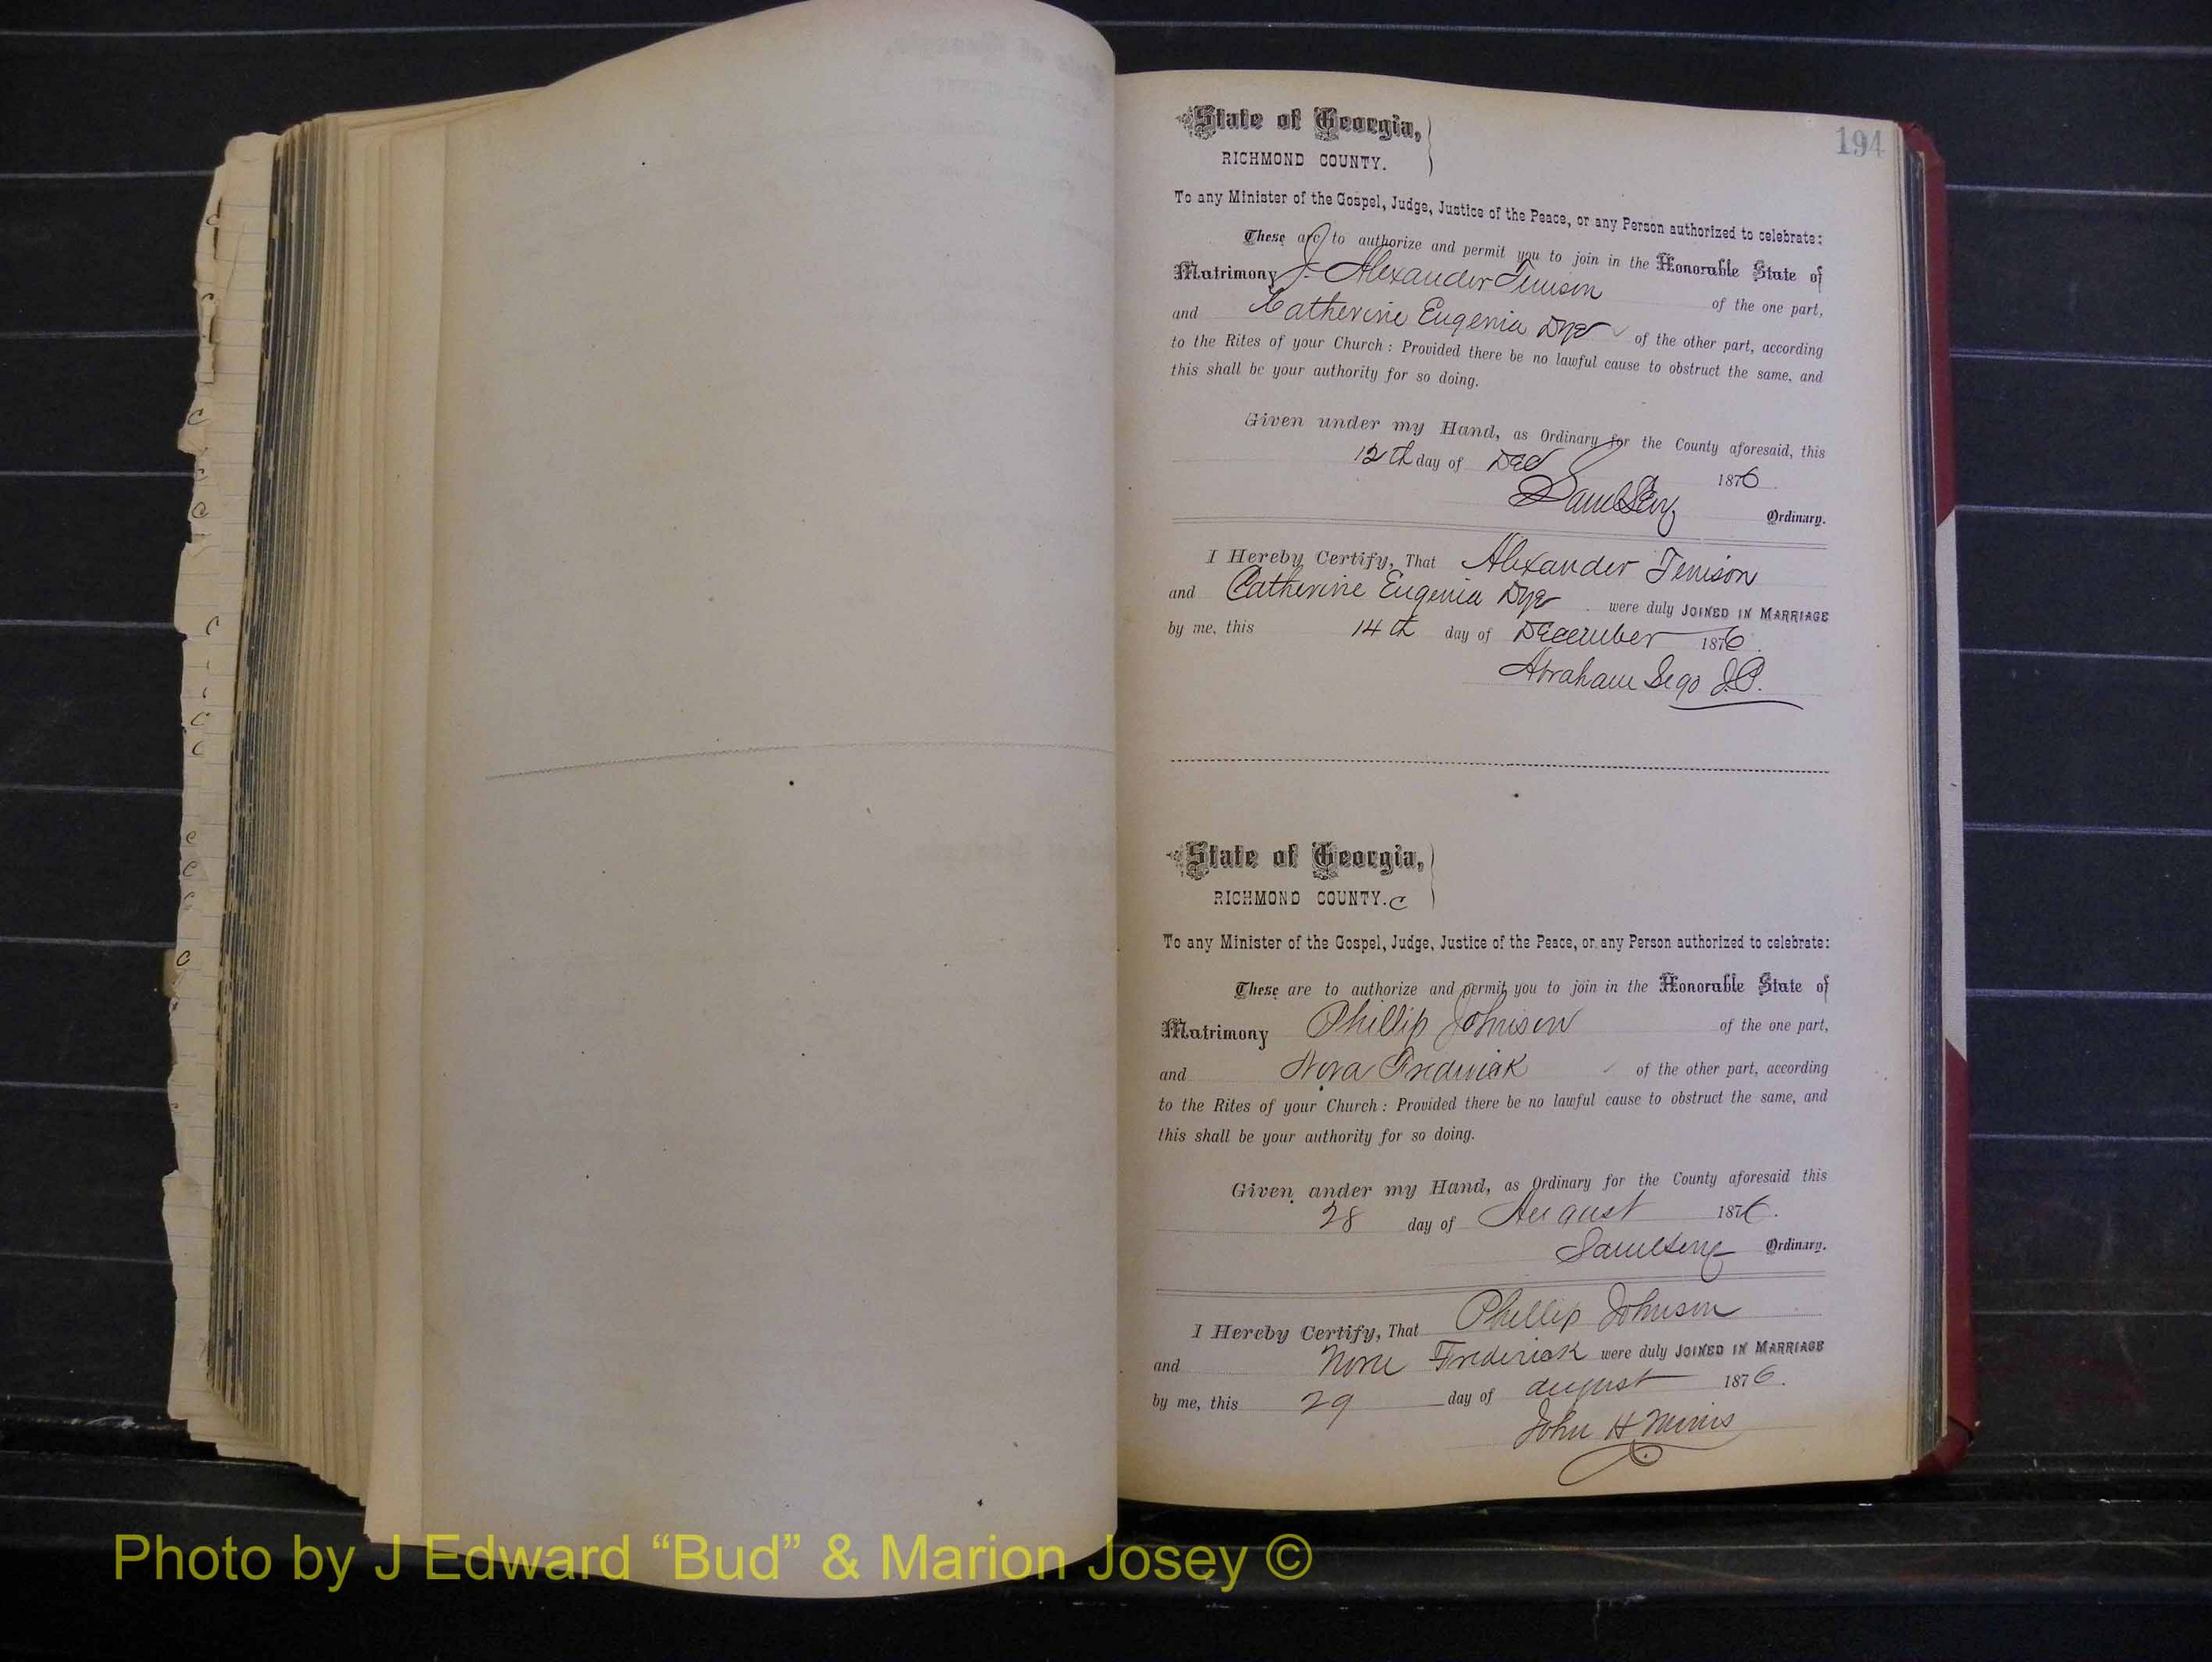 194
State of Georgia,
RICHMOND COUNTY.
To any Minister of the Gospel, Judge, Justice of the Peace, or any Person authorized to celebrate:
These are to authorize and permit you to join in the Honorable State of
Matrimony J. Alexander Tenison of the one part,
and Catherine Eugenia Dye of the other part, according
to the Rites of your Church: Provided there be no lawful cause to obstruct the same, and
this shall be your authority for so doing.
Given under my Hand, as Ordinary for the County aforesaid, this
12th day of Dec 1876
Saml Levy Ordinary.
I Hereby Certify, That Alexander Tenison
and Catherine Eugenia Dye were duly JOINED IN MARRIAGE
by me, this 14th day of December 1876.
Abraham Sego J.P.
State of Georgia,
RICHMOND COUNTY. C
To any Minister of the Gospel, Judge, Justice of the Peace, or any Person authorized to celebrate:
These are to authorize and permit you to join in the Honorable State of
Matrimony Phillip Johnson of the one part,
and Nora Frederick of the other part, according
to the Rites of your Church: Provided there be no lawful cause to obstruct the same, and
this shall be your authority for so doing.
Given under my Hand, as Ordinary for the County aforesaid this
28 day of August 1876.
Saml Levy Ordinary.
I Hereby Certify, That Phillip Johnson
and Frederick were duly JOINED IN MARRIAGE
by me, this 29 day of august 1876.
John H Mims
Photo by J Edward “Bud” & Marion Josey ©